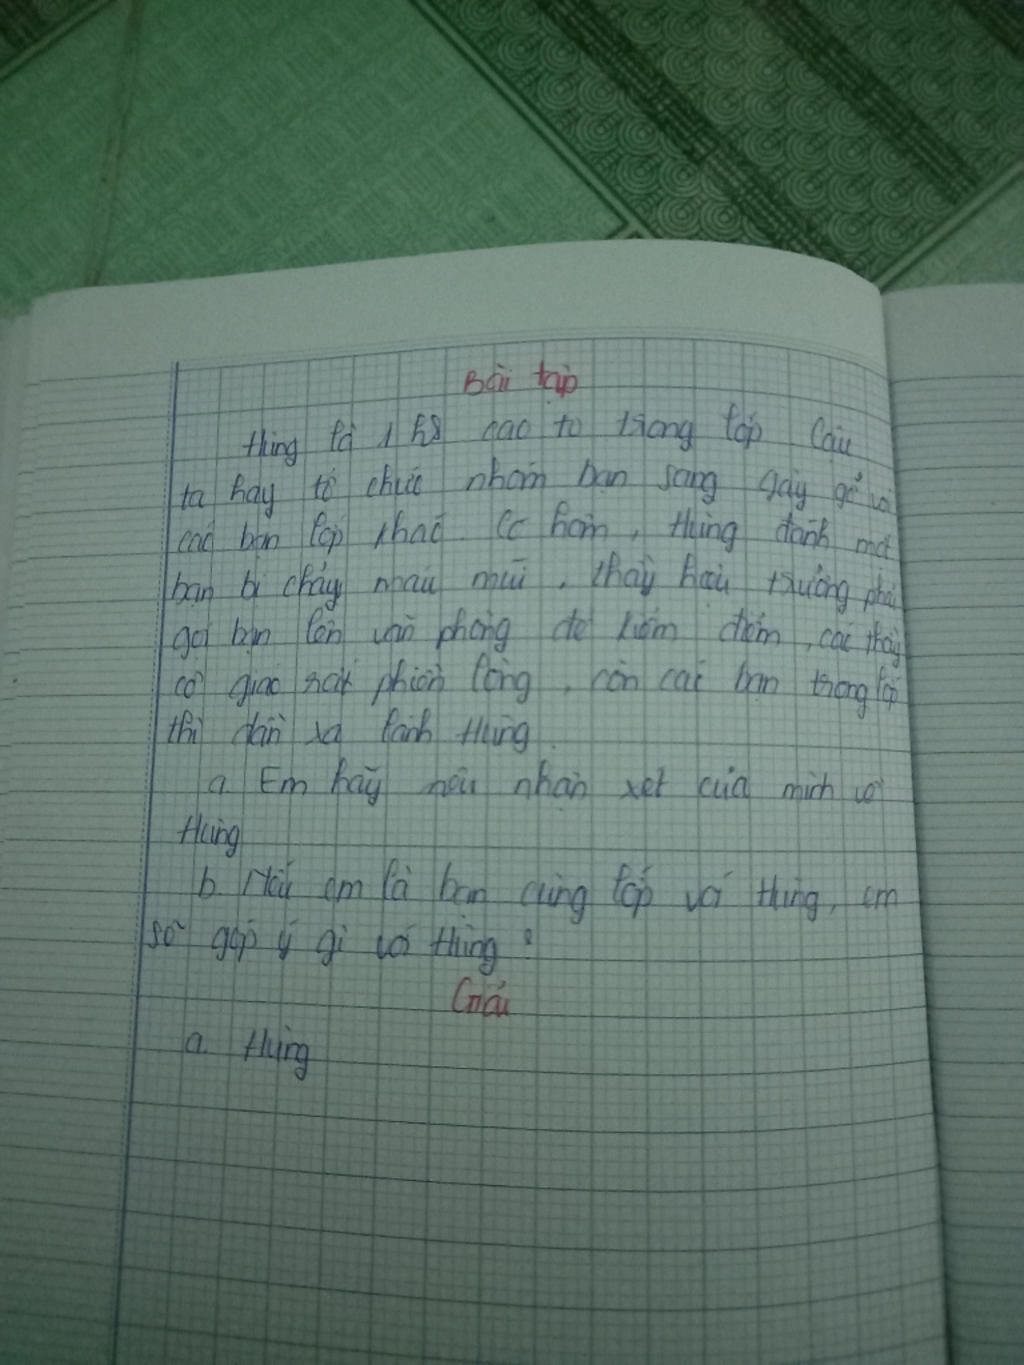 Bài tập
Hùng là 1 hs cao to trong lớp Cậu
ta hay tổ chức nhóm bạn sang gây gổ với
các bạn lớp khác. Có hôm, Hùng đánh một
bạn bị chảy máu mũi, thầy hiệu trưởng phải
gọi bạn lên văn phòng để kiểm điểm, các thầy
cô giáo rất phiền lòng, còn các bạn trong lớp
thì dần xa lánh Hùng.
a. Em hãy nêu nhận xét của mình về
Hùng
b. Nếu em là bạn cùng lớp với Hùng, em
sẽ góp ý gì với Hùng?
Giải
a. Hùng